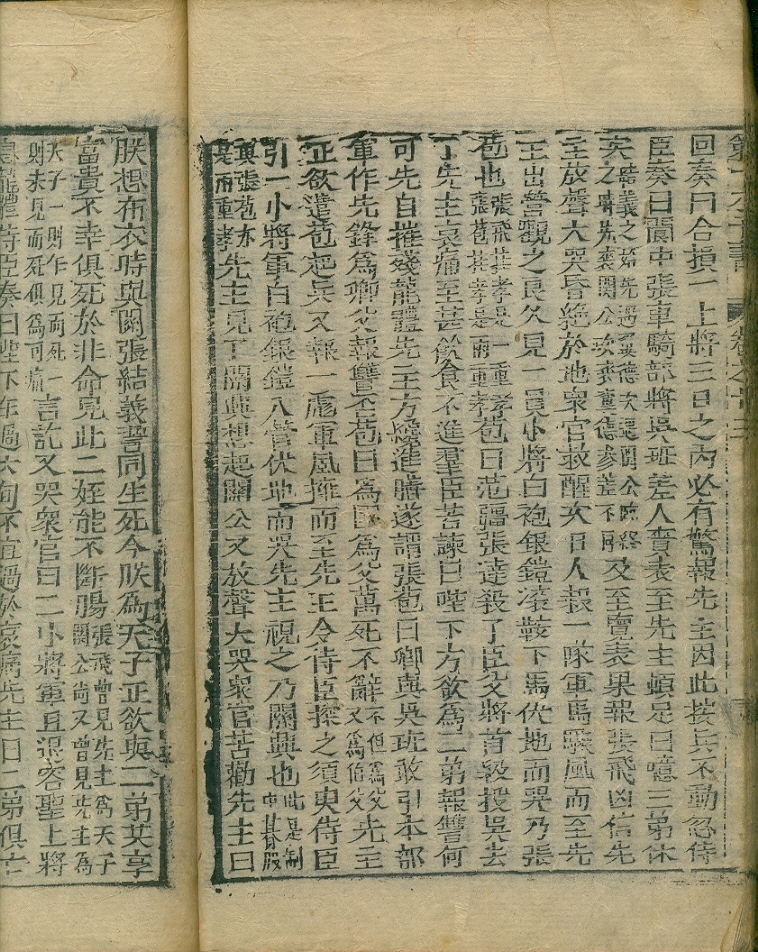 第一才子書 卷之四十三
回奏曰合損一上將三日之內必有驚報先主因此按兵不動忽侍
臣奏曰閬中張車騎部將吳班差人賫表至先主頓足曰噫三弟休
矣
及至覽表果報張飛凶信先
主放聲大哭昏絶於地衆官救醒次日人報一隊軍馬驟風而至先
主出營觀之良久見一員小將白袍銀鎧滾鞍下馬伏地而哭乃張
苞也張飛其孝是一重孝張苞其孝是兩重孝苞曰范疆張達殺了臣父將首級投吳去
了先主哀痛至甚飲食不進羣臣苦諫曰陛下方欲為二弟報讐何
可先自摧殘龍體先主方纔進膳遂謂張苞曰卿與吳班敢引本部
軍作先鋒為卿父報讐否苞曰為國為父萬死不辭不但為父又為伯父先主
正欲遣苞起兵又報一彪軍風擁而至先主令侍臣探之須臾侍臣
引一小將軍白袍銀鎧入營伏地而哭先主視之乃關興也此是制中朞服
與張苞亦是兩重孝先主見了關興想起關公又放聲大哭衆官苦勸先主曰
朕想布衣時與關張結義誓同生死今朕為天子正欲與二弟共享
富貴不幸俱死於非命見此二姪能不斷腸張飛曾見先主為天子關公尚又曾見先主為
天子一則作見而死則未見而死俱為可痛言訖又哭衆官曰二小將軍且退容聖上將
息龍體侍臣奏曰陛下年過六旬不宜過於哀痛先主曰二弟俱亡